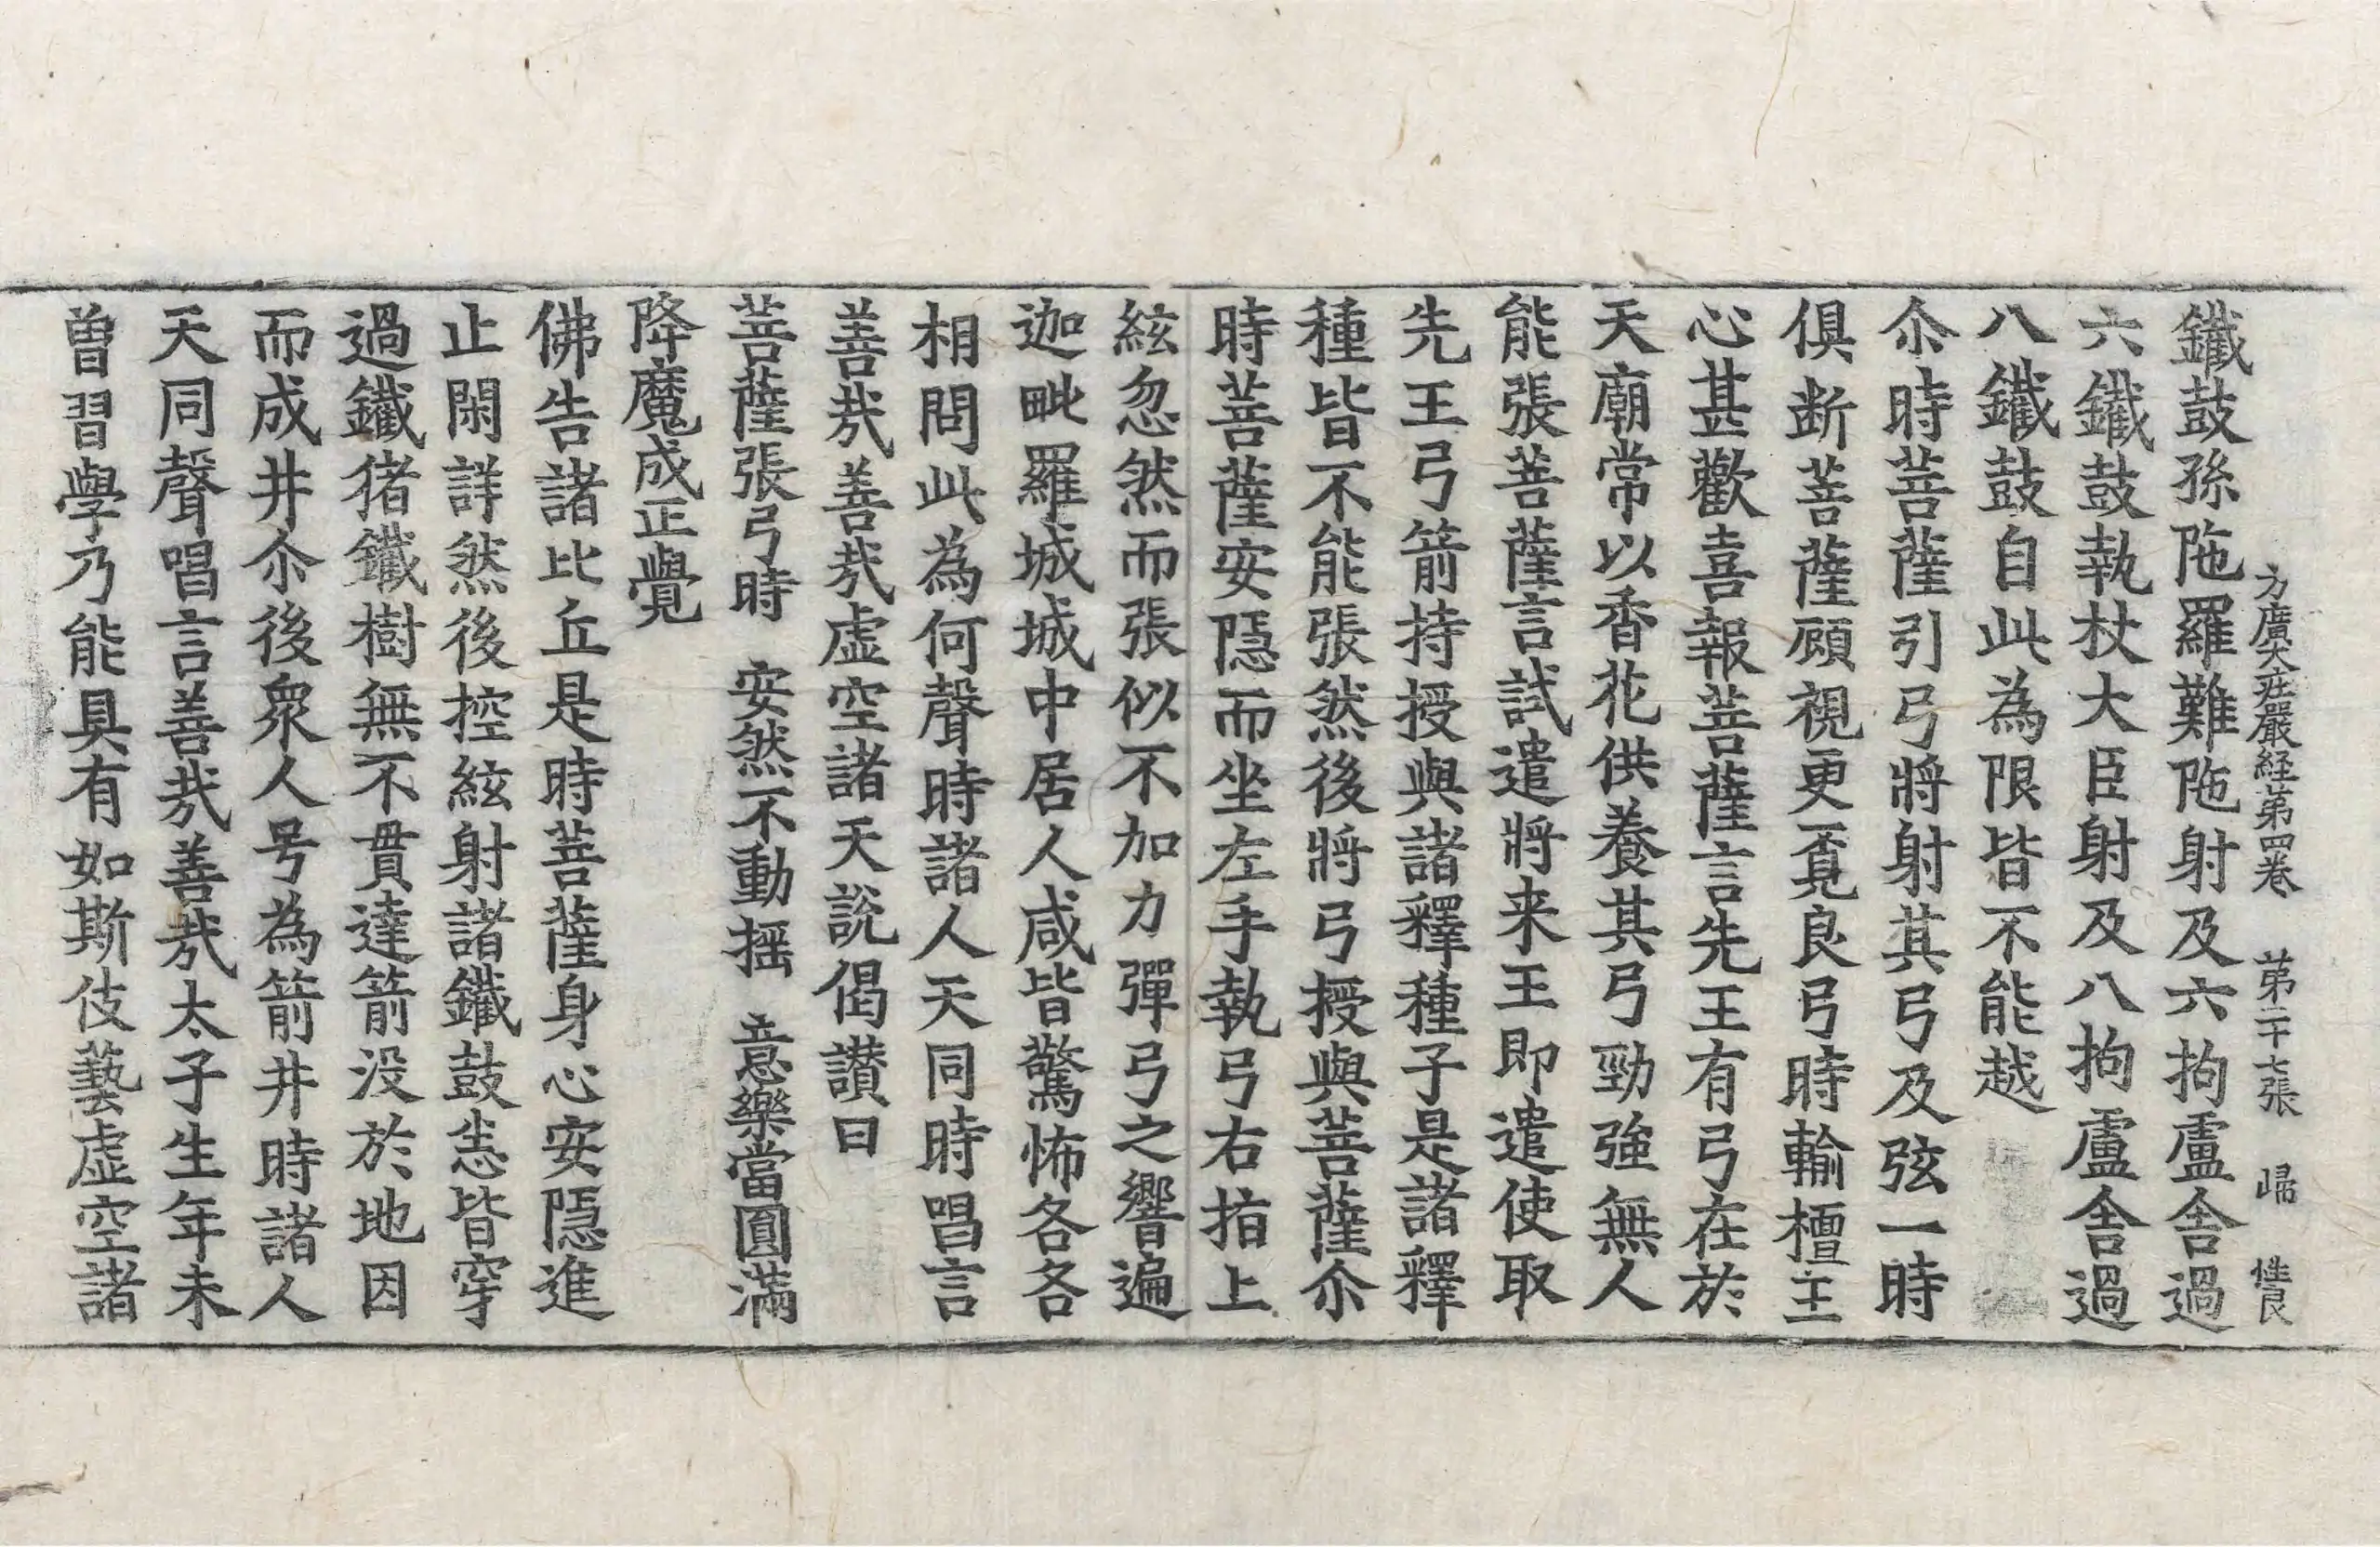 方廣大荘嚴経第四巻 第二十七張 歸 性良
鐵鼓孫陁羅難陁射及六拘盧舎過
六鐵鼓執杖大臣射及八拘盧舎過
八鐵鼓自此為限皆不能越
尒時菩薩引弓將射其弓及弦一時
俱断菩薩顧視更覔良弓時輸檀王
心甚歡喜報菩薩言先王有弓在於
天廟常以香花供養其弓勁強無人
能張菩薩言試遣將来王即遣使取
先王弓箭持授與諸釋種子是諸釋
種皆不能張然後將弓授與菩薩尒
時菩薩安隠而坐左手執弓右指上
絃忽然而張似不加力彈弓之響遍
迦毗羅城城中居人咸皆驚怖各各
相問此為何聲時諸人天同時唱言
善㢤善㢤虚空諸天說偈讃曰
菩薩張弓時 安然不動揺 意樂當圓滿
降魔成正覺
佛告諸比丘是時菩薩身心安隠進
止閑詳然後控絃射諸鐵鼓悉皆穿
過鐵猪鐵樹無不貫達箭没於地因
而成井尒後衆人号為箭井時諸人
天同聲唱言善㢤善㢤太子生年未
曽習學乃能具有如斯伎藝虚空諸